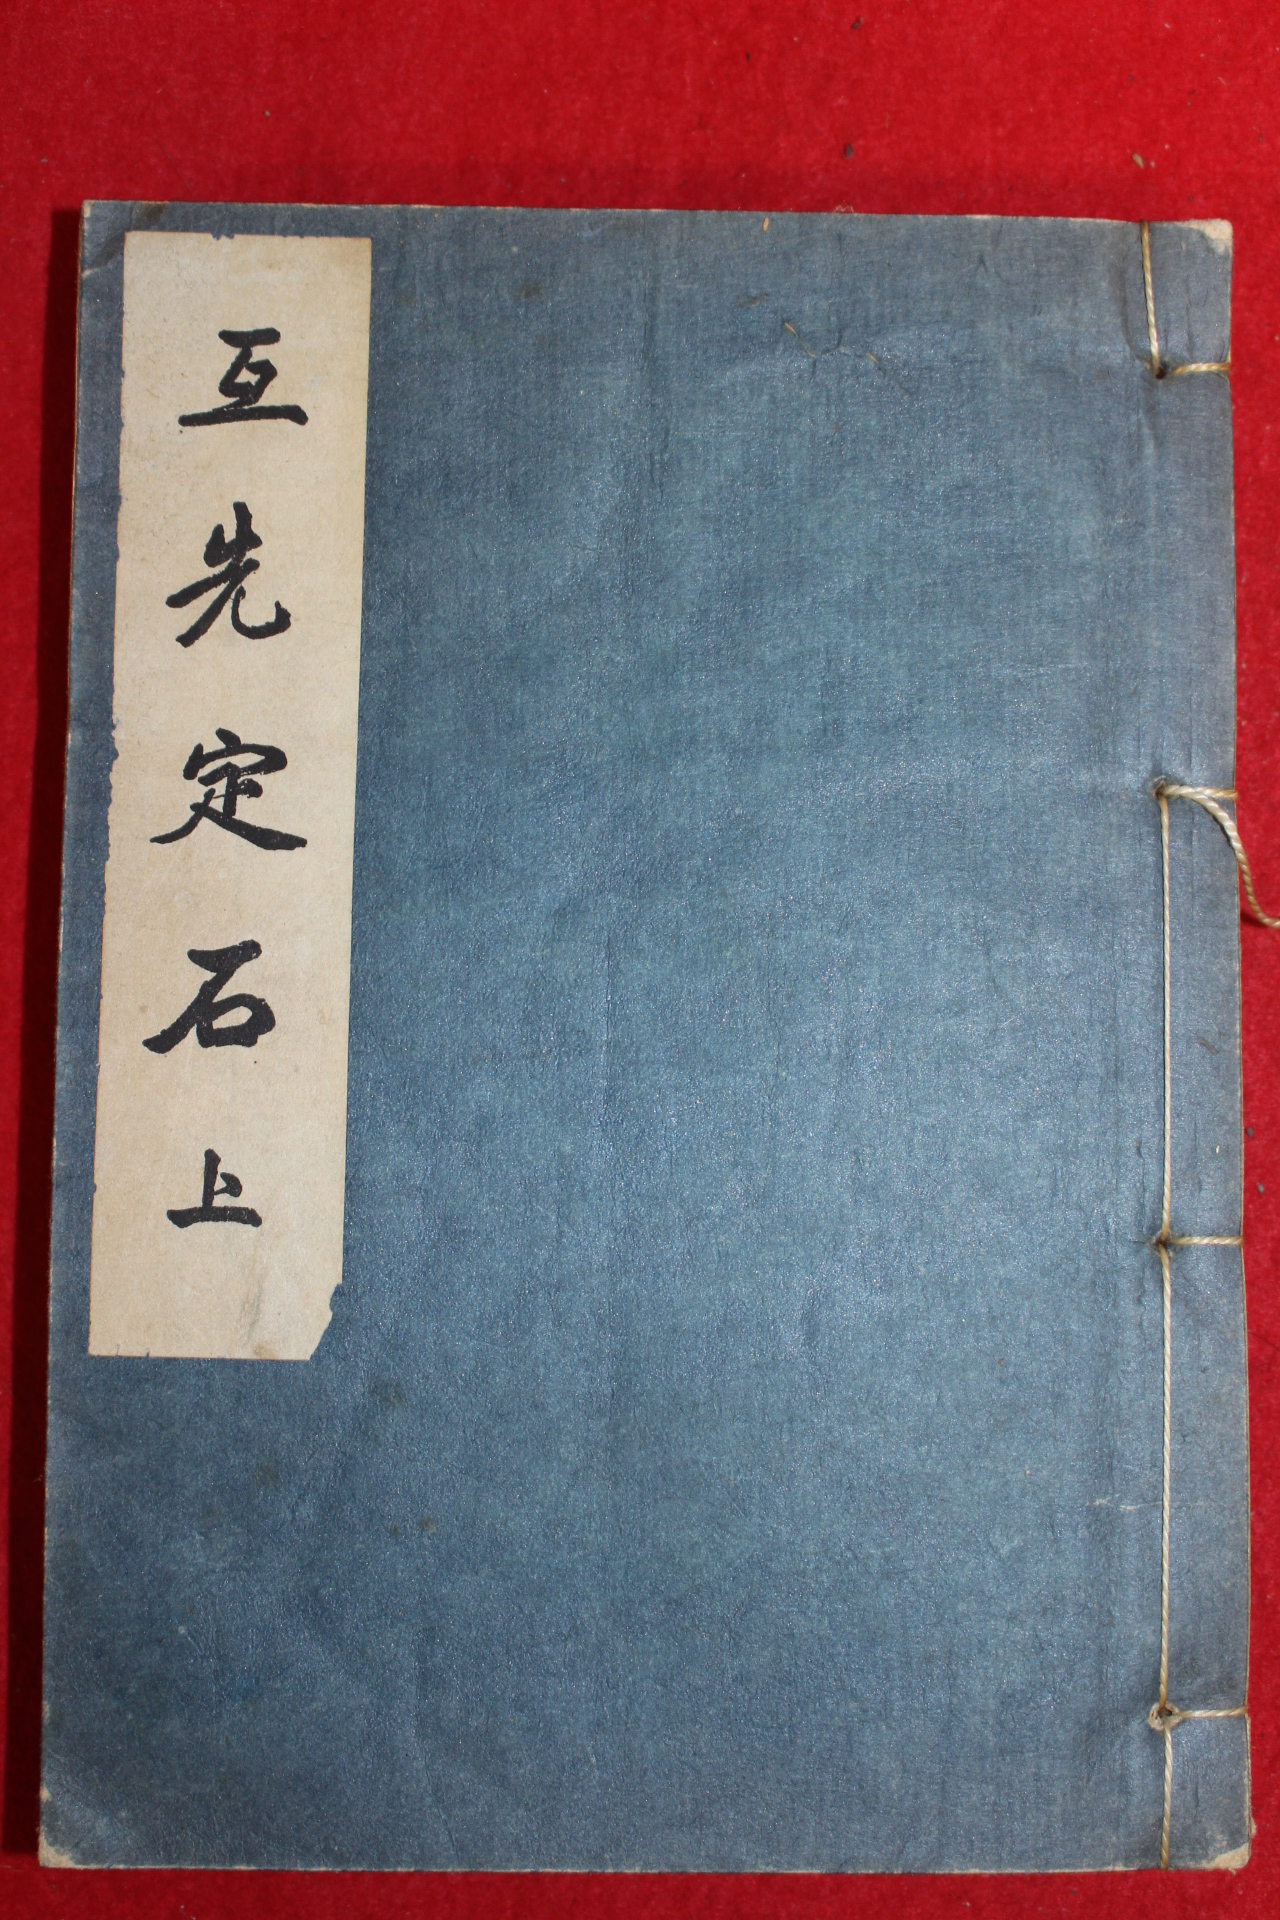 互先定石上